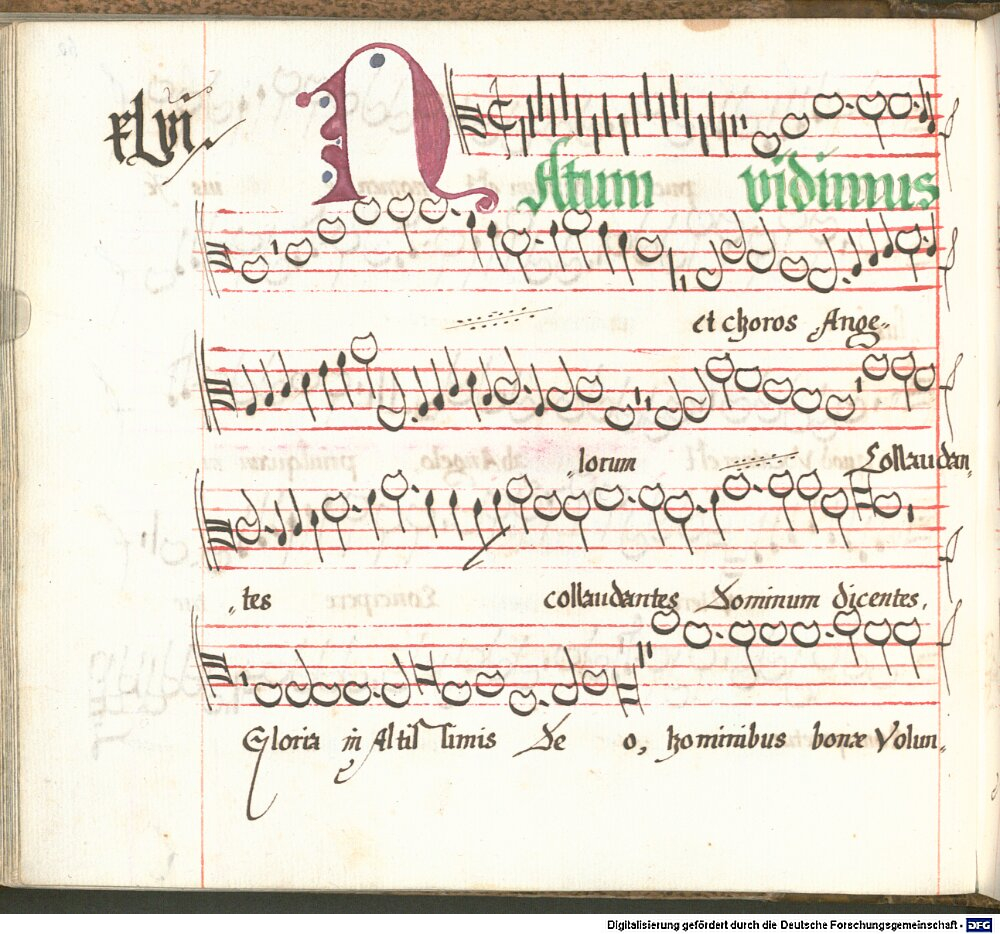 xLvi.
NAtum vidimus
et choros Ange-
lorum Collaudan-
tes collaudantes Dominum dicentes,
Gloria in Altissimis Deo, hominibus bonæ Volun-
Digitalisierung gefördert durch die Deutsche Forschungsgemeinschaft - DFG